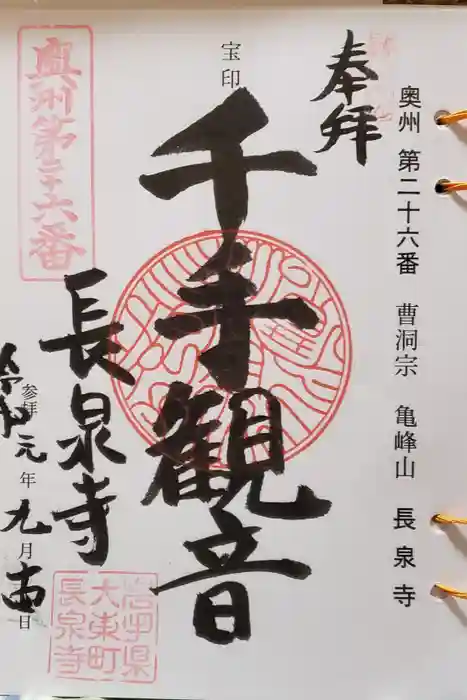 奥州 第二十六番 曹洞宗 亀峰山 長泉寺
奉拝
宝印
千手観音
長泉寺
奥州第二十六番
参拝
令和元年九月 日
岩手県
大東町
長泉寺